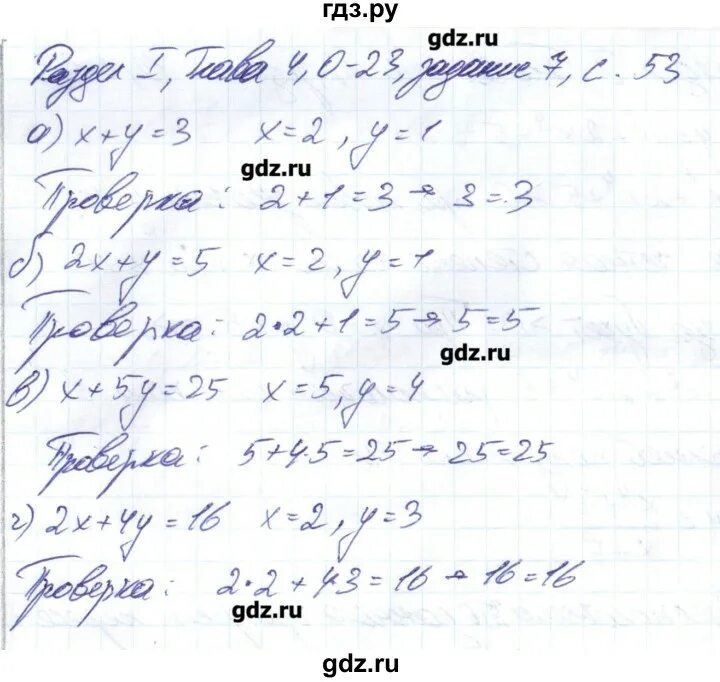 гдз.ру
gdz.ru
Раздел I, Глава 4, О-23, задание 7, с. 53
а) x+y=3 x=2, y=1
gdz.ru
Проверка: 2+1=3 → 3=3
б) 2x+y=5 x=2, y=1
Проверка: 2·2+1=5 → 5=5
gdz.ru
в) x+5y=25 x=5, y=4
Проверка: 5+4·5=25 → 25=25
г) 2x+4y=16 x=2, y=3
Проверка: 2·2+4·3=16 → 16=16
gdz.ru
gdz.ru